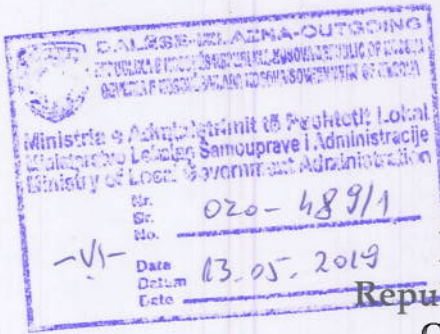 DALËSE-IZLAZNA-OUTGOING
Ministria e Administrimit të Pushtetit Lokal
Ministarstvo Lokalne Samouprave i Administracije
Ministry of Local Government Administration
Nr.
Br.
No.
020-489/1
-VI-
Data
Datum
Date
13.05.2019
Repu